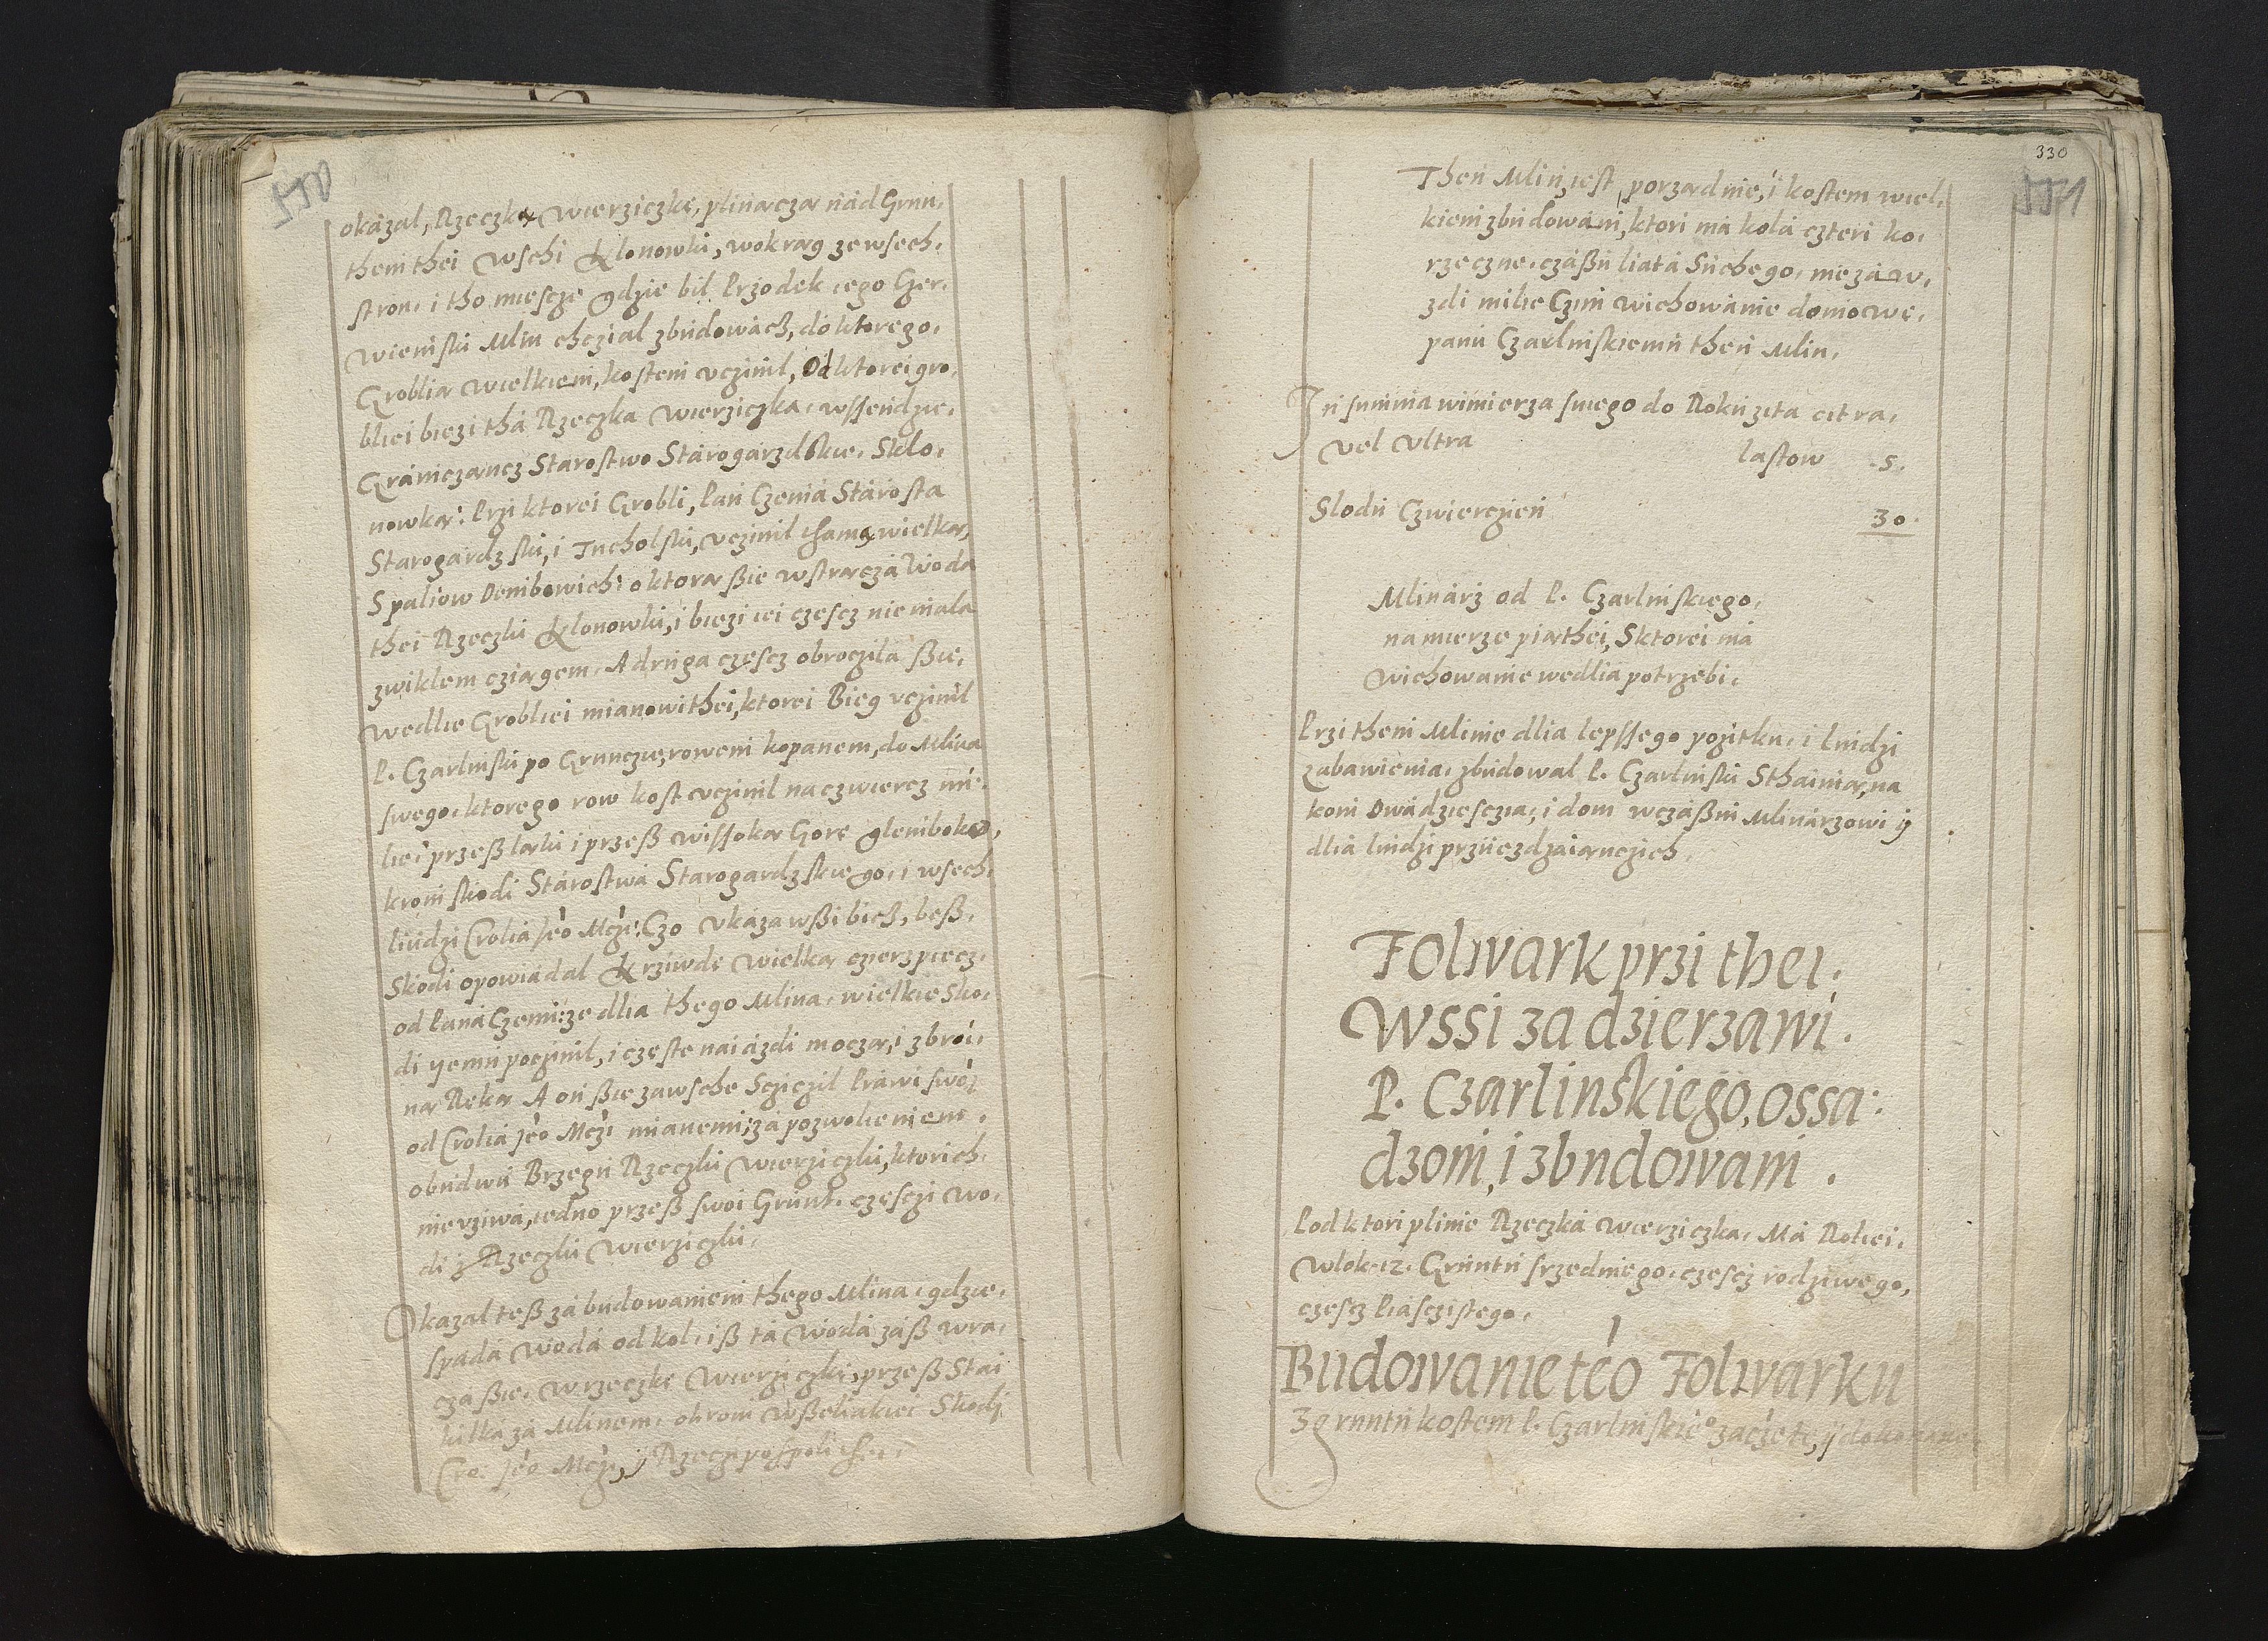 550
okazal, Rzeczkę Wierziczkę, plinączą nad Grun,
them thei Wschi Klonowki, wokrąg ze wsech,
stron, i tho miescze gdzie bil Przodek iego Czer,
wienski Mlin chczial zbudowacz, do ktorego,
Groblią wielkiem, kostem uczinil, Od ktorei gro,
bliei biezi thá Rzeczka Wierziczka, wssendzie,
Graniczancz Starostwo Stárogárzdskie, Sklo,
nowką: Przi ktorei Grobli, Pan Czemá Stárosta
Starogardzski, i Tucholski, uczinil thamę wielką,
S paliow Dembowich, o ktorą ßie wstrącza Woda
thei Rzeczki Klonowki, i biezi iei czescz niemala
zwiklem cziągem, A druga czescz obroczila ßie,
wedlie Grobliei mianowithei, ktorei Bieg uczinil
P. Czarlinski po Grunczie, rowem kopanem, do Mlina
swego, ktorego row kost uczinil na czwiercz mi,
liei przeß ląki i przeß wissoką Gorę glemboko,
krom skodi Stárostwá Starogardzskiego, i wsech,
liudzi Crolia Jeo Mczi: Czo ukázawßi bicz, beß,
Skodi opowiádal Krziwdę Wielką czerzpiecz,
od Paná Czemi: ze dlia thego Mlina, wielkie Sko,
di yemu poczinil, i czeste naiázdi moczą, i zbroi,
ną Reką A on ßie zawsche Sczicził Prawi swoi
od Crolia Jeo Mczi mianemi, zá pozwolieniem,
obudwu Brzegu Rzeczki Wierziczki, ktorich,
nie uziwá, iedno przeß swoi Grunt, czesczi wo,
di z Rzeczki Wierziczki,
Okazal teß zá budowaniem thego Mlina, gdzie,
spáda wodá od kol, iß tá wodá záß wra,
cza ßie, w rzeczkę Wierziczkę, przeß Stai
kilká zá Mlinem, okrom wßeliakiei Skodi
Cro: Jeo Mczi, y Rzeczipospolithei,
330
551
Then Mlin, iest porzadnie, i kostem wiel,
kiem zbudowáni, ktori má kolá czteri ko,
rzeczne, czáßu liatá Suchego, nie záw,
zdi mile Czini wichowánie domowe,
panu Czarlinskiemu then Mlin,
In summa wimierza swego do Roku zita citra,
vel ultra lastow .5.
Slodu Czwierczien 30.
Mlinárz od P. Czarlinskiego,
na mierze piąthei, S ktorei má
wichowanie wedlia potrzebi,
Przi them Mlinie dlia lepssego pozitku, i ludzi
zabawienia, zbudowal P. Czarlinski Sthainią, na
koni Dwádziesczia, i dom wczáßni Mlinárzowi y
dliá ludzi prziiezdzaiąnczich,
Folwark przi thei:
Wssi za dzierzawi.
P. Czarlinskiego, ossa:
dzoni, i zbudowani.
Pod ktori plinie Rzeczká Wierziczka, Má Roliei,
Wlok .12. Gruntu srzedniego, czescz rodziwego,
czescz Piasczistego,
Budowanie teo Folwarku
Z gruntu kostem P. Czarlinskieo zaczete, y dokonane